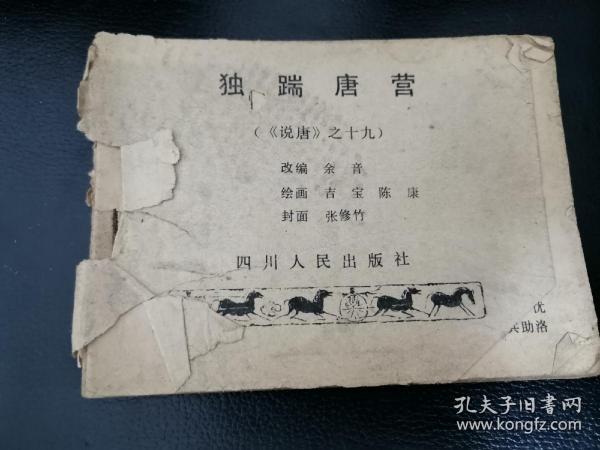 独踹唐营
（《说唐》之十九）
改编 余音
绘画 吉宝 陈康
封面 张修竹
四川人民出版社
优
兵助洛
孔夫子旧书网
www.kongfz.com